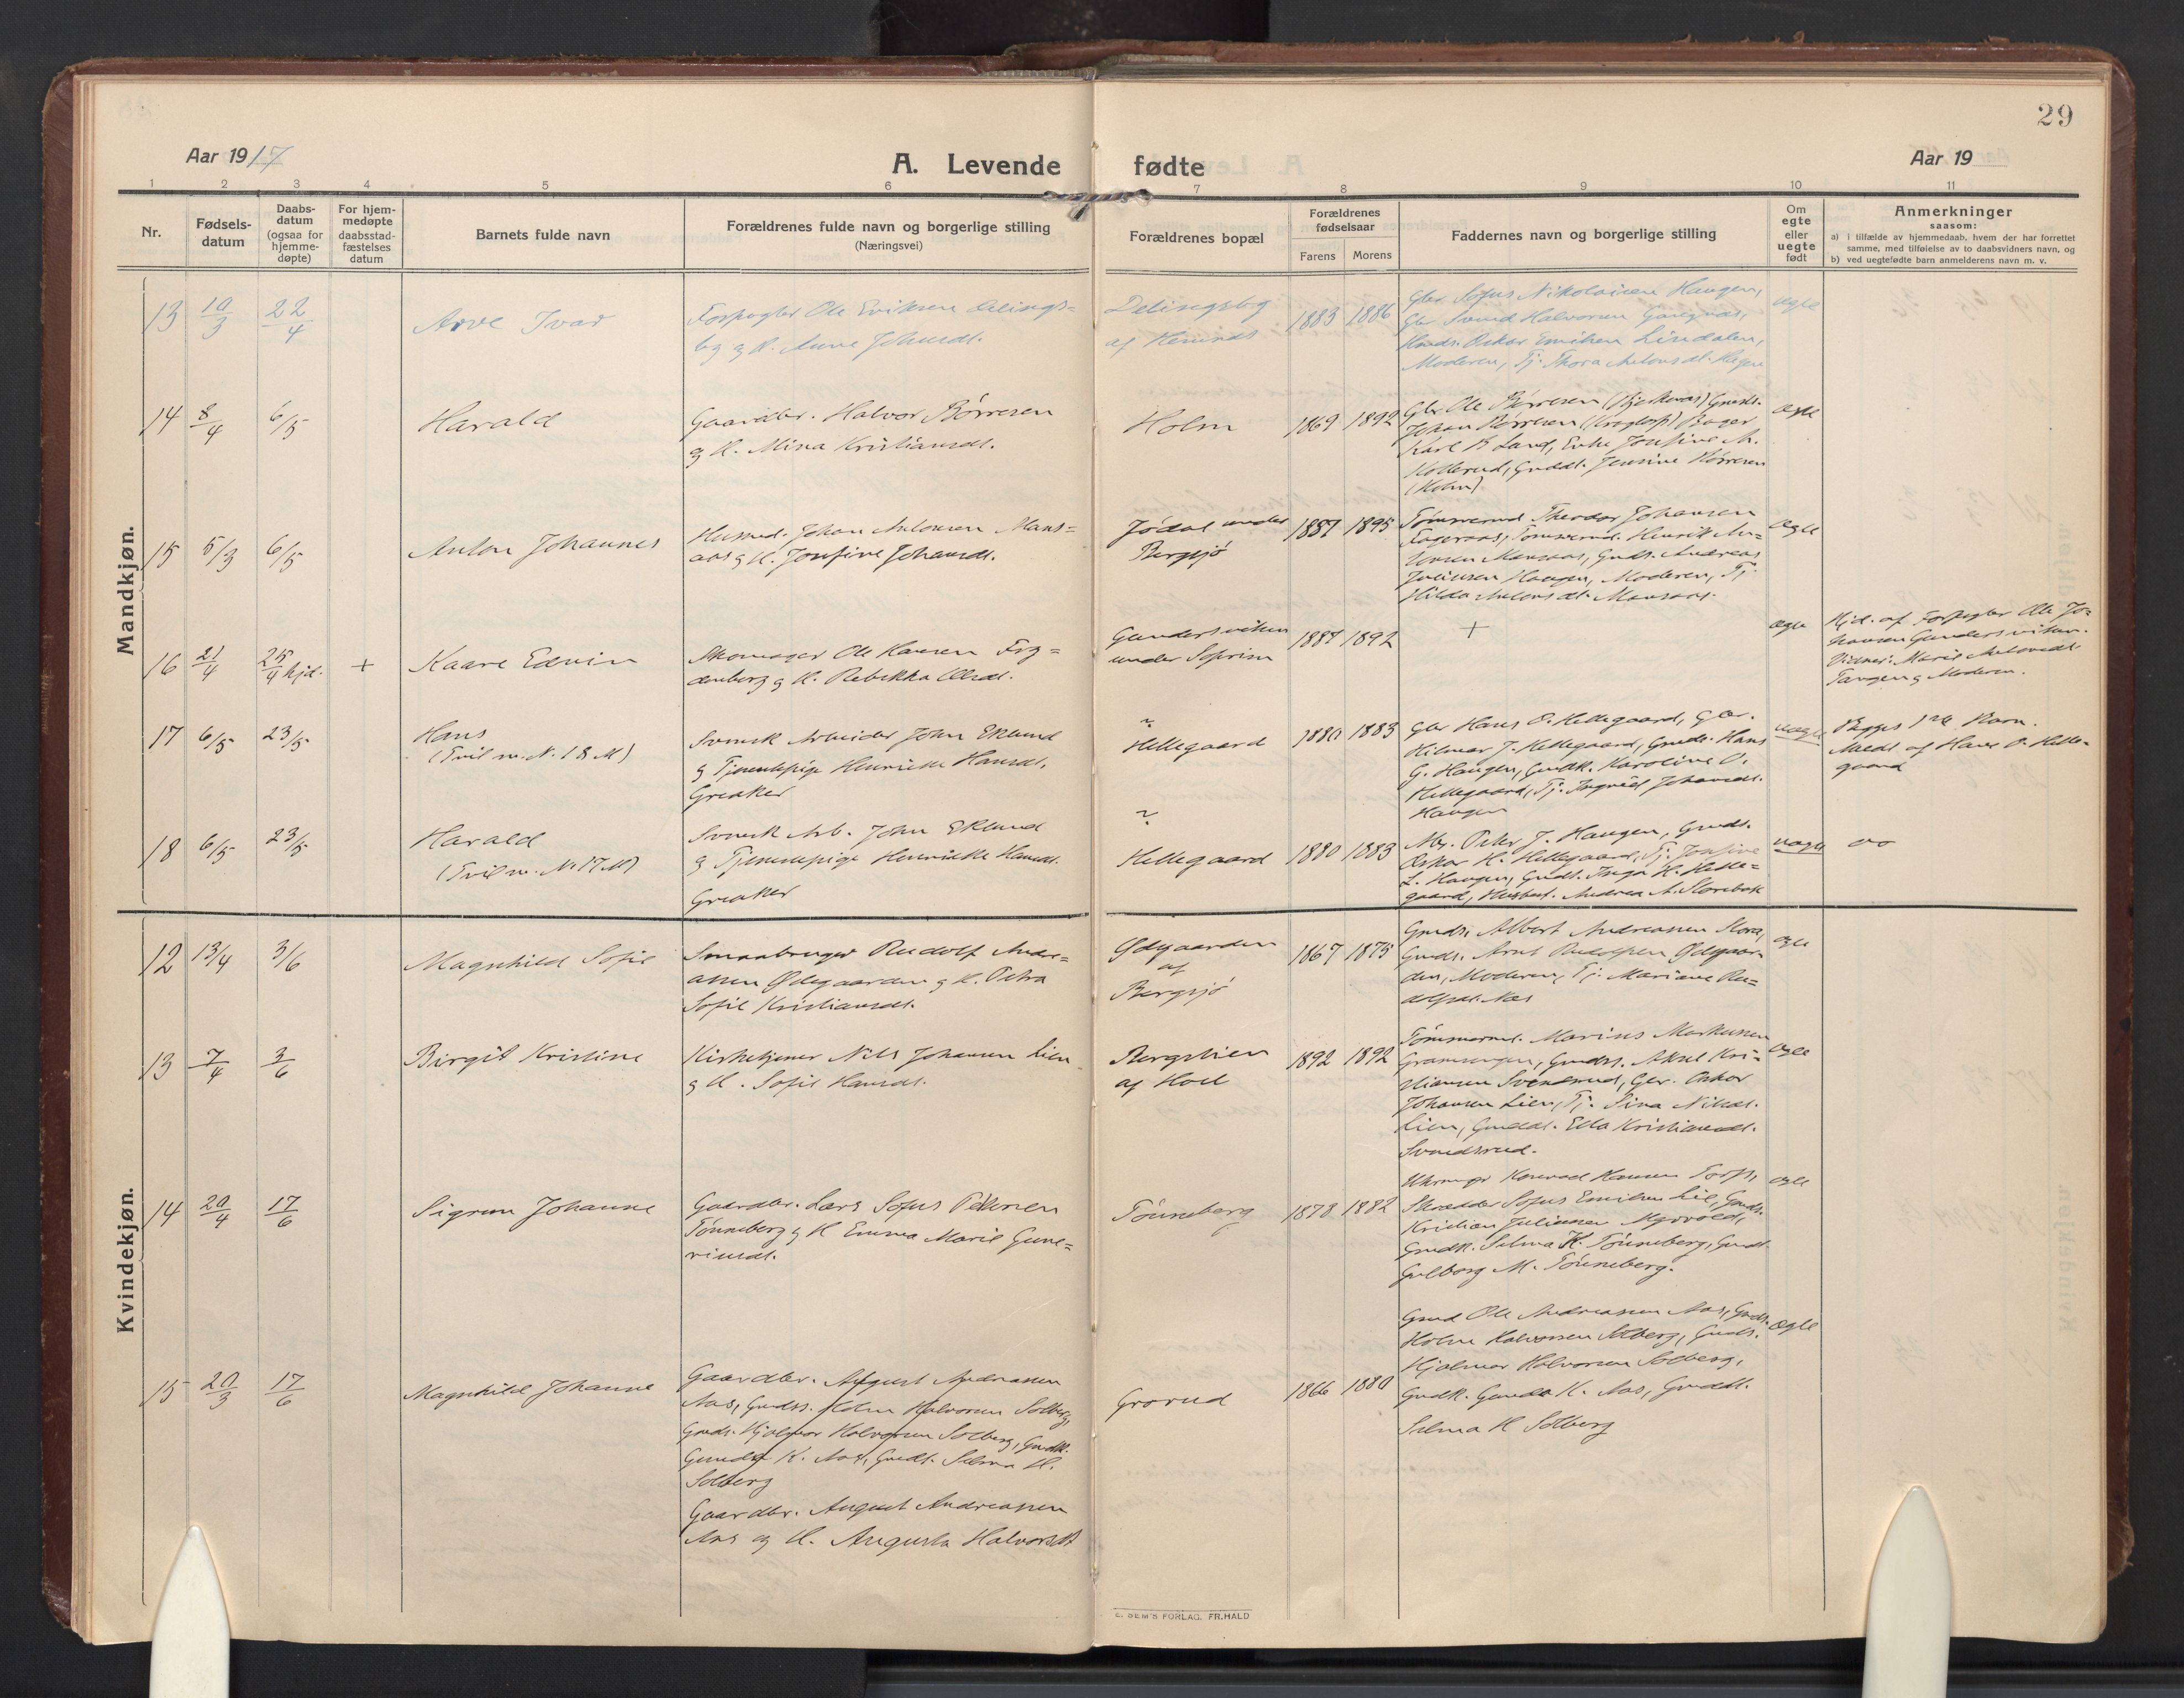 29
Aar 1917
A. Levende
fødte
Aar 19
1 2 3 4 5 6 7 8 9 10 11
Nr.
Fødsels-
datum
Daabs-
datum
(ogsaa for
hjemme-
døpte)
For hjem-
medøpte
daabsstad-
fæstelses
datum
Barnets fulde navn
Forældrenes fulde navn og borgerlige stilling
(Næringsvei)
Forældrenes bopæl
Forældrenes
fødselsaar
Farens Morens
Faddernes navn og borgerlige stilling
Om
egte
eller
uegte
født
Anmerkninger
saasom:
a) i tilfælde av hjemmedaab, hvem der har forrettet
samme, med tilføielse av to daabsvidners navn, og
b) ved uegtefødte barn anmelderens navn m. v.
Mandkjøn.
13 10/3 22/4
Arve Ivar
Forpagter Ole Eriksen Delings-
by g H. Anna Johansdt.
Delingsby
af
1883 1886
Gbr. Sofus Nikolaisen Haugen,
Gbr. Svend Halvorsen
Oskar Emilsen Lindalen,
Moderen, Tj. Thora Antonsdt.
ægte
14 8/4 6/5
Harald
Gaardbr. Halvor Børresen
og H. Mina Kristiansdt.
Holm
1869 1892
Gbr. Ole Børresen
Johan Børresen (Kragtorp) Bager
Karl B Lund, Enke Josefine M.
Kollerud, Grddt. Jensine Børresen
(Holm)
ægte
15 5/3 6/5
Anton Johannes
Husmd. Johan Antonsen Mans-
aas g H. Josefine Johansdt.
Jødal under
Bergsjø
1887 1895
Tømmermd. Theodor Johansen
Fageraas, Tømmermd. Henrik An-
tonsen Mansaas, Grds. Andreas
Juliusen Haugen, Moderen, Tj.
Hilda Antonsdt. Mansaas.
ægte
16 21/4 25/4 hjd. +
Kaare Edvin
Skomager Ole Hansen Fry-
denberg g H. Rebekka Olsdt.
Gundersviken
under Soprim
1887 1892
+
ægte
Hjd. af Forpagter Ole Jo-
hansen Gundersviken.
Vidner: Marie Antonsdt.
Tangen g Moderen.
17 6/5 23/5
Hans
(Tvil. m. N. 18 M)
Svensk Arbeider John Eklund
g Tjenestepige Henriette Hansdt.
Greaker
?
Hellegaard
1880 1883
Gbr Hans O. Hellegaard, Gbr.
Hilmar J. Hellegaard, Grds. Hans
G. Haugen, Grdk. Karoline O.
Hellegaard, Tj. Ingrid Johansdt.
Haugen
uægte
Begges 1ste Barn.
Meldt af Hans O. Helle-
gaard
18 6/5 23/5
Harald
(Tvil. m. N. 17 M)
Svensk Arb. John Eklund
g Tjenestepige Henriette Hansdt.
Greaker
?
Hellegaard
1880 1883
Peter J. Haugen, Grds.
Oskar H. Hellegaard, Tj. Josefine
L. Haugen, Grdt. Inga H. Helle-
gaard, Husbest. Andrea A. Storebak
uægte
do
Kvindekjøn.
12 13/4 3/6
Magnhild Sofie
Smaabruger Rudolf Andre-
assen Ødegaarden g H. Petra
Sofie Kristiansdt.
Ødegaarden
af
Bergsjø
1867 1875
Grds. Albert Andreassen Kora,
Grds. Arnt Rudolfsen Ødegaar-
den, Moderen, Tj. Mariane Ru-
dolfsdt. Nes
ægte
13 7/4 3/6
Birgit Kristine
Kirketjener Nils Johansen Lien
g H. Sofie Hansdt.
Bergslien
af Hoel
1892 1892
Tømmermd. Marius Markussen
Gramsengen, Grds. Aksel Kri-
stiansen Svendsrud, Gbr. Oskar
Johansen Lien, Tj. Sina Nilsdt.
Lien, Grddt. Ella Kristiansdt.
Svendsrud.
ægte
14 20/4 17/6
Sigrun Johanne
Gaardbr. Lars Sofus Pedersen
Tønneberg g H Emma Marie Gune-
riusdt.
Tønneberg
1878 1882
Konrad Hansen Torp,
Skrædder Sofus Emilsen Lie, Grds.
Kristian Juliussen Myrvold,
Grdk. Selma K. Tønneberg, Grdt.
Gulborg M. Tønneberg.
ægte
15 20/3 17/6
Magnhild Johanne
Gaardbr. August Andreassen
Aas, Grds. Holm Halvorsen Solberg,
Grds. Hjalmar Halvorsen Solberg, Grdk.
Gunda K. Aas, Grdt. Selma H.
Solberg
Gaardbr. August Andreassen
Aas og H. Augusta Halvorsdt
Grorud
1866 1880
Grmd Ole Andreassen Aas, Grds.
Holm Halvorsen Solberg, Grds.
Hjalmar Halvorsen Solberg,
Grdk. Gunda K. Aas, Grddt.
Selma H Solberg
ægte
E. SEM'S FORLAG. FR.HALD